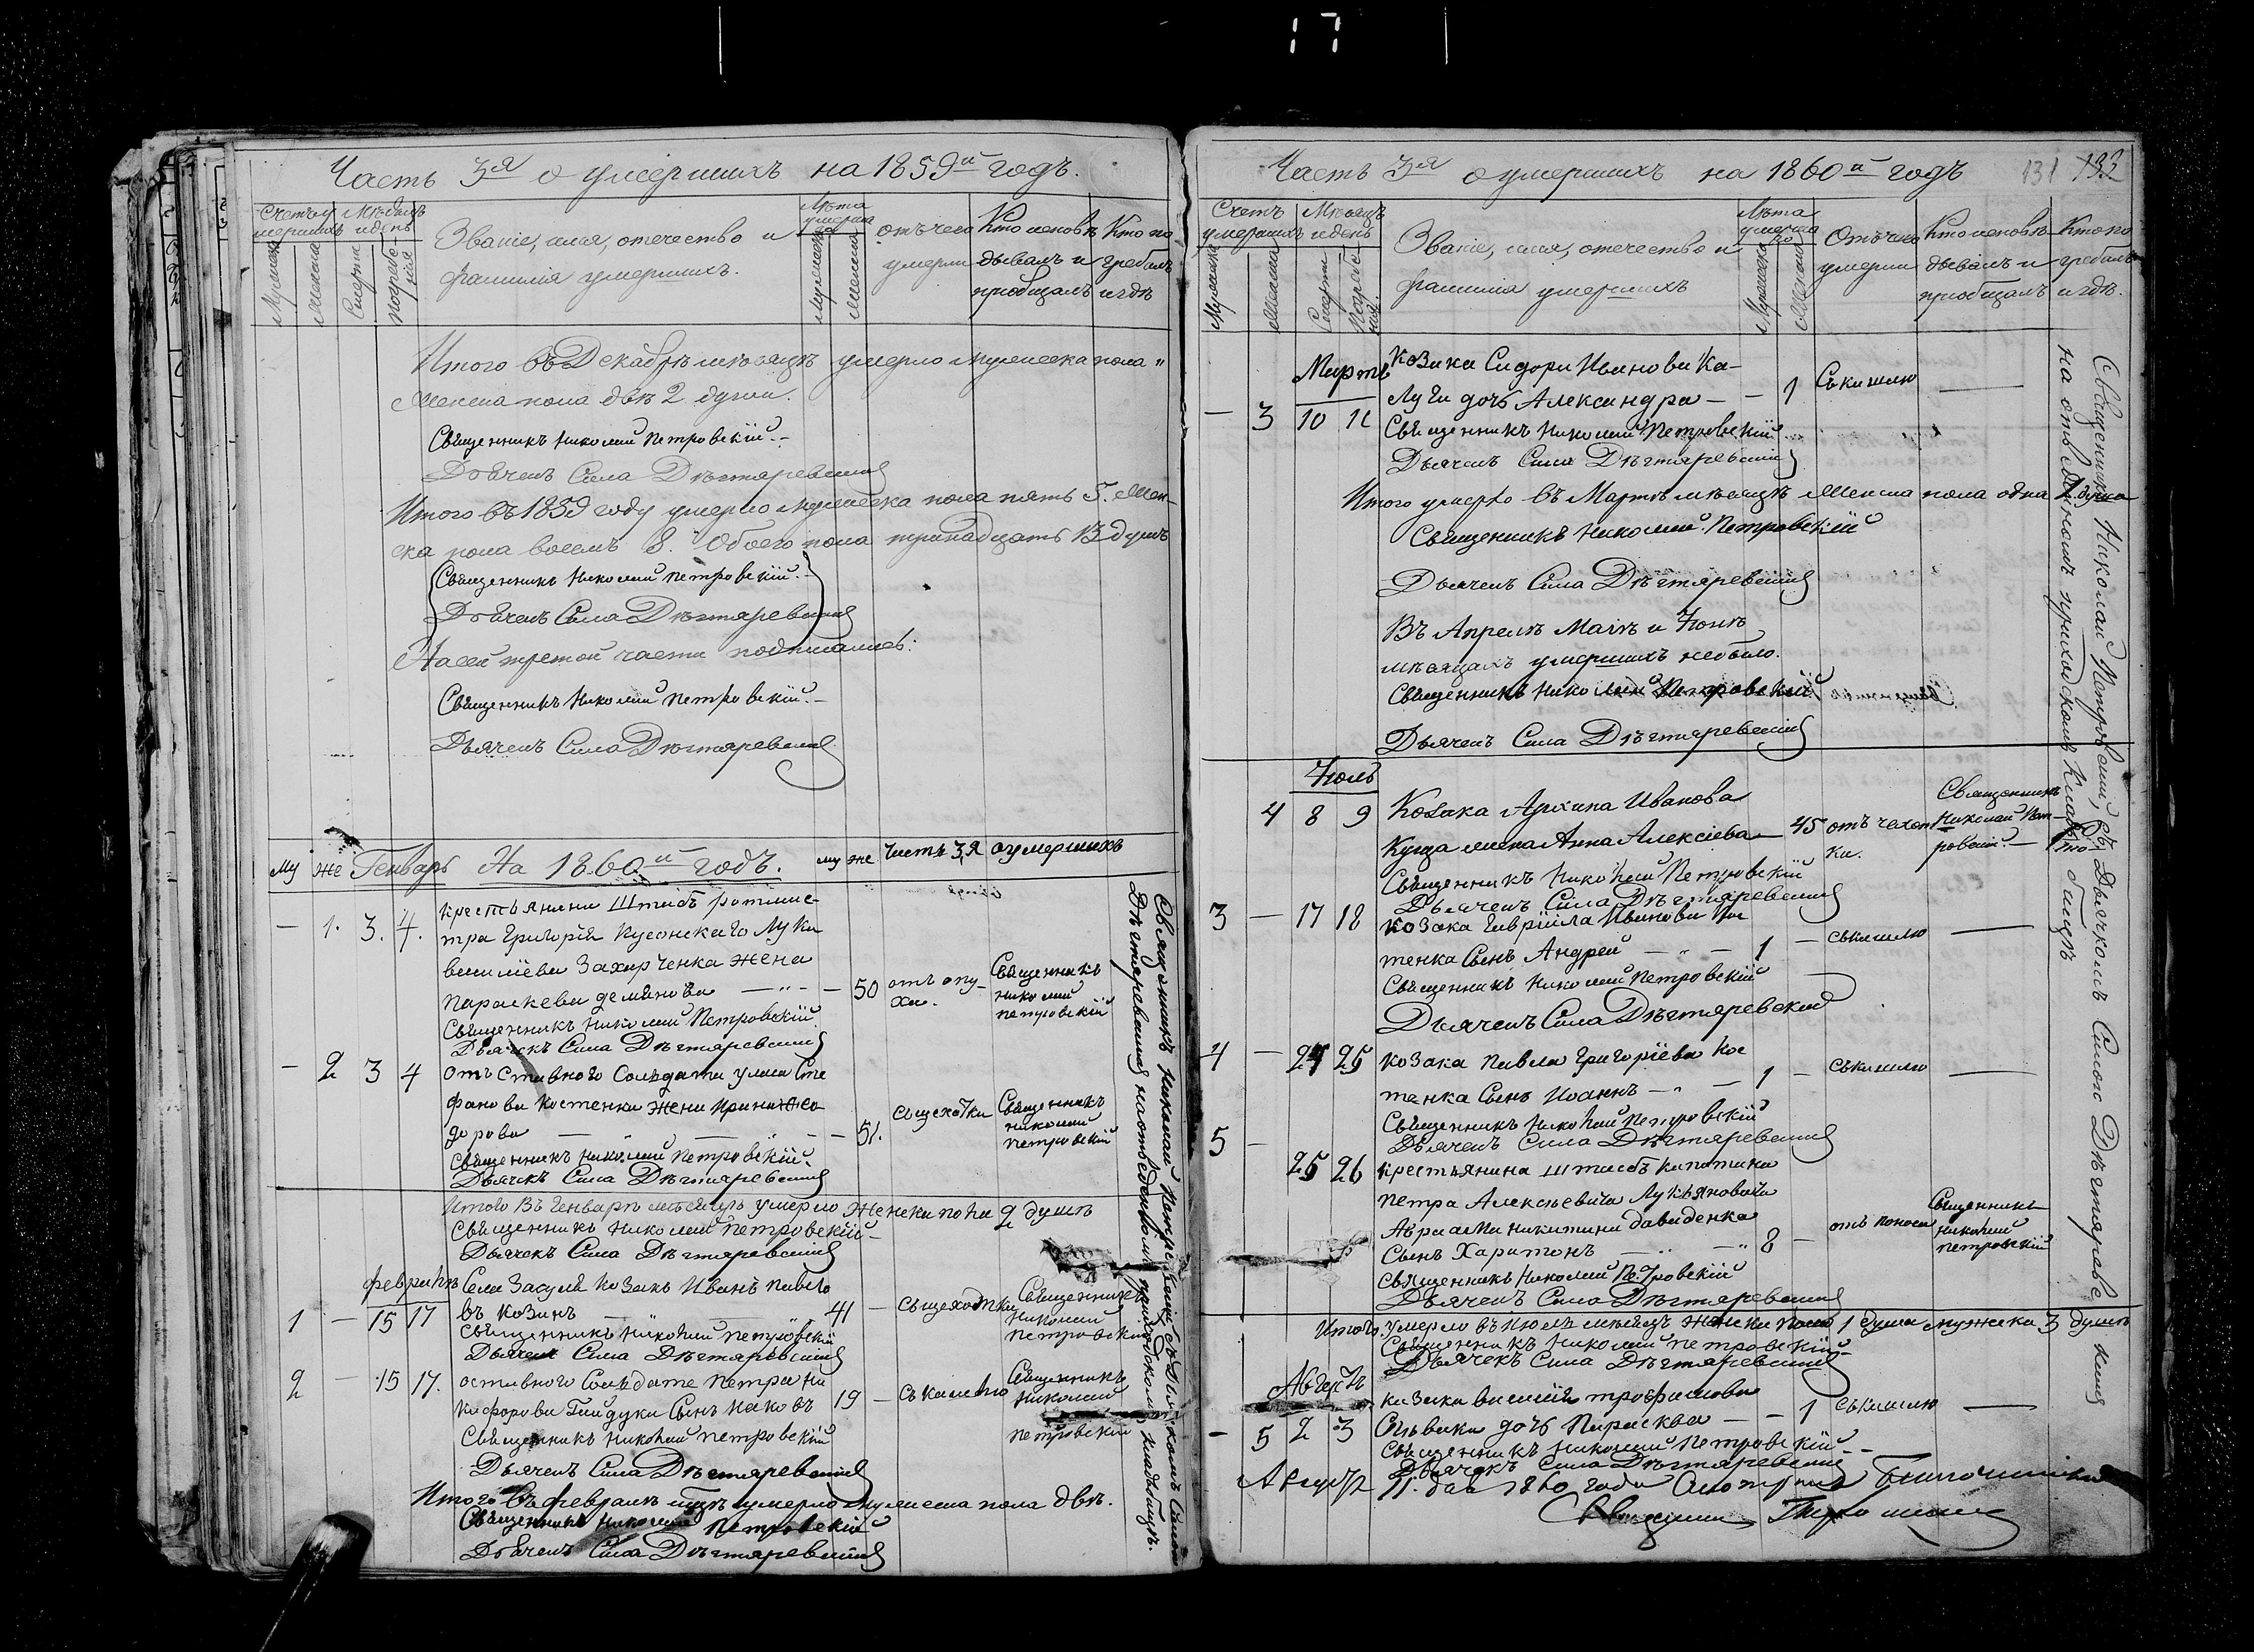 Часть 3я о умершихъ на 1859й годъ.
Счетъ умершихъ
Мужеска
Женска
Мѣсяцъ и день
Смерти
Погребенія
Званіе, имя, отечество и
фамилія умершихъ.
Лѣта умершаго
Мужеска
Женска
отъ чего
умерли
Кто исповѣ
дывалъ и
пріобщалъ
Кто по
гребалъ
и гдѣ
Итого въ Декабрѣ мѣсяцѣ умерло мужеска пола "
Женска пола двѣ 2 души.
Священникъ Николай Петровскій.-
Дьячекъ Сила Дѣгтяревскій
Итого въ 1859 году умерло мужеска пола пять 5. Жен-
ска пола восемь 8. Обоего пола тринадцать 13 душъ
Священникъ Николай Петровскій.-
Дьячекъ Сила Дѣгтяревскій
На сей третой части подписались:
Священникъ Николай Петровскій.-
Дьячекъ Сила Дѣгтяревскій
Му же Генваръ На 1860й годъ. му же Часть 3,я о умершихъ
— 1. 3. 4. Крестьянина Штабъ ротмис-
тра Григорія Кусонскаго Лука
василіева Захарченка жена
Параскева демянова — " — — 50 отъ опу-
ха.
Священникъ
Николай
Петровскій
Священникъ Николай Петровскій
Дьячекъ Сила Дѣгтяревскій
— 2 3 4 отъ ставного Солъдата Сте
фанова Костенка жена Ирина Фео
дорова — — — 51. Съ щехотки
Священникъ
Николай
Петровскій
Священникъ Николай Петровскій.
Дьячекъ Сила Дѣгтяревскій
Итого Въ Генварѣ мѣсяцѣ умерло женска пола 2 душъ
Священникъ Николай Петровскій-
Дьячекъ Сила Дѣгтяревскій
Февраль
1 — 15 17 Села Засуля Козакъ Иванъ Павло
въ Козинъ — — 41 — Съ щехотки
Священникъ
Николай
Петровскій
Священникъ Николай Петровскій
Дьячекъ Сила Дѣгтяревскій
2 — 15 17. оставного Солъдата Петра Ни
кифорова Гайдука Сынъ Іаковъ 19 — Съ кашлю
Священникъ
Николай
Петровскій
Священникъ Николай Петровскій
Дьячекъ Сила Дѣгтяревскій
Итого въ февралѣ мцѣ умерло мужеска пола двѣ.
Священникъ Николай Петровскій
Дьячекъ Сила Дѣгтяревскій
Священникъ Николай Петровскій съ Дьячкомъ Силою
Дѣгтяревскимъ на отведенномъ приходскомъ кладбищѣ.
Часть 3я о умершихъ на 1860й годъ 131 133
Счетъ умершихъ
Мужеска
Женска
Мѣсяцъ и день
Смерти
Погребенія
Званіе, имя, отечество и
фамилія умершихъ
Лѣта умершаго
Мужеска
Женска
Отъ чего
умерли
Кто исповѣ-
дывалъ и
пріобщалъ
Кто по
гребалъ
и гдѣ.
Мартъ
Козака Сидора Иванова Ка-
— 3 10 11 луги дочь Александра — — 1 Съ кашлю —
Священникъ Николай Петровскій
Дьячекъ Сила Дѣгтяревскій
Итого умерло въ Мартѣ мѣсяцѣ Женска пола одна 1 душа
Священникъ Николай Петровскій
Дьячекъ Сила Дѣгтяревскій
Въ Апрелѣ Маіѣ и Іюнѣ
мѣсяцахъ умершихъ небыло.
Священникъ Николай Петровскій
Дьячекъ Сила Дѣгтяревскій
Іюль
4 8 9 Козака Архипа Иванова
Куща жена Анна Алексіева — 45 отъ чехот
ки.
Священникъ
Николай Пет-
ровскій.—
Священникъ Николай Петровскій
Дьячекъ Сила Дѣгтяревскій
3 — 17 18 Козака Гавріила Иванова Кос
тенка Сынъ Андрей — " — 1 — съ кашлю —
Священникъ Николай Петровскій
Дьячекъ Сила Дѣгтяревскій
4 — 24 25 Козака Павла Григоріева Кос
тенка Сынъ Иоаннъ — " — 1 — Съ кашлю —
Священникъ Николай Петровскій
Дьячекъ Сила Дѣгтяревскій
5 — 25 26 Крестьянина штабсъ Капитана
Петра Алексъевича Лукъяновича
Авраама Никитина Давиденка
Сынъ Харитонъ — " — " 8 — отъ поноса
Священникъ
Николай
Петровскій
Священникъ Николай Петровскій
Дьячекъ Сила Дѣгтяревскій
Итого умерло въ Июлѣ мѣсяцѣ женска пола 1 душа мужска 3 душъ
Священникъ Николай Петровскій
Дьячекъ Сила Дѣгтяревскій
Августъ
Козака василія трофимова
— 5 2 3 дочь Парасква — — 1 Съ кашлю —
Священникъ Николай Петровскій-
Дьячекъ Сила Дѣгтяревскій
Августа 11. дня 1860 года
Священникъ Николай Петровскій, съ Дьячкомъ Силою Дѣгтяревс кимъ
на отведенномъ приходскомъ Кладбищѣ